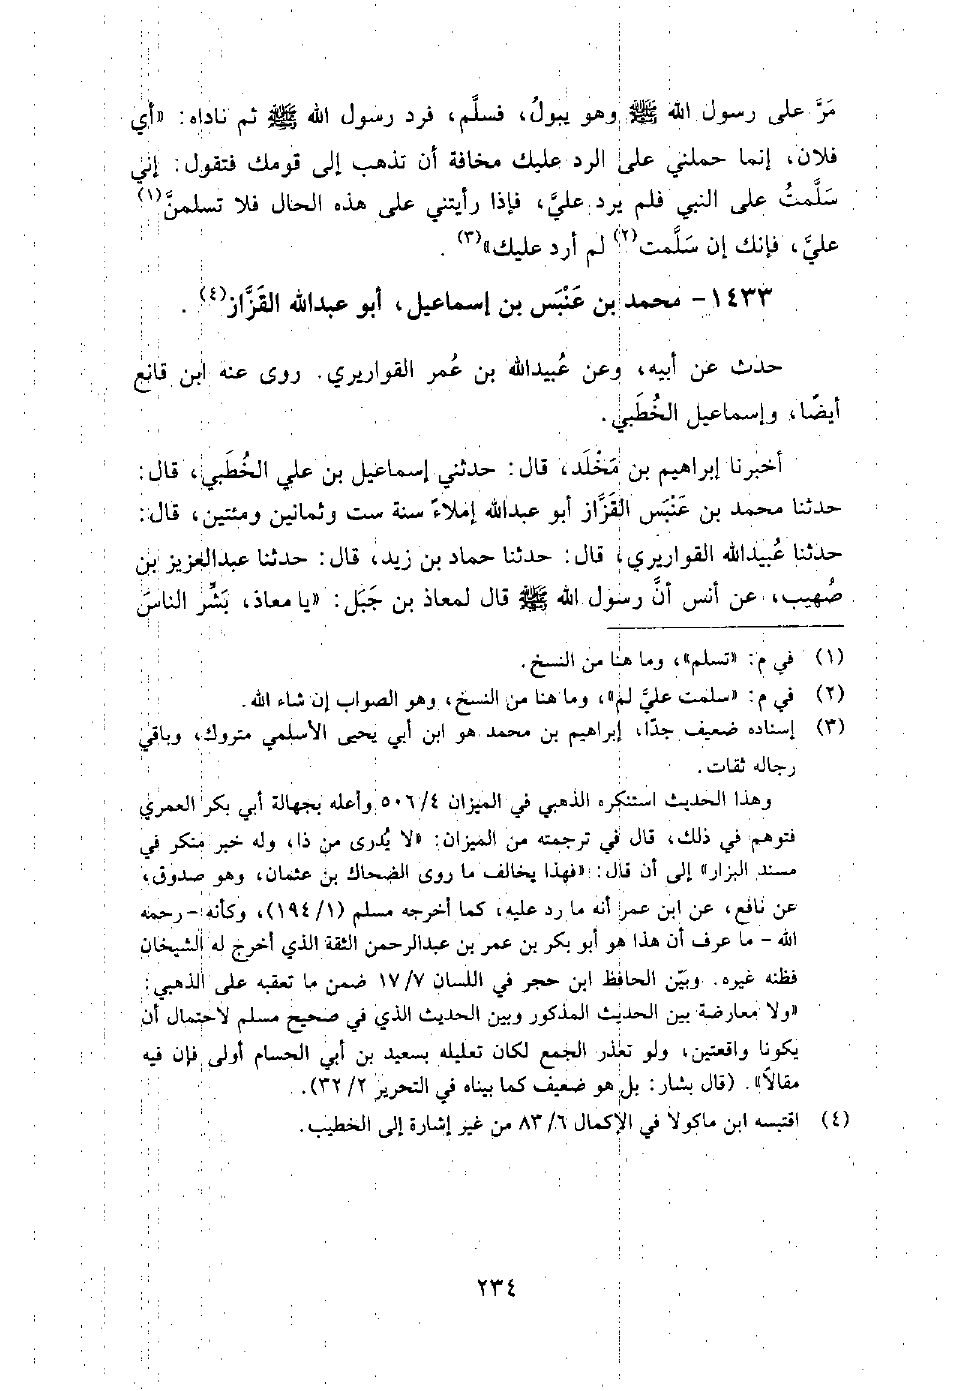 مَرَّ على رسول الله ﷺ وهو يبولُ، فسلَّم، فرد رسول الله ﷺ ثم ناداه: «أي
فلان، إنما حملني على الرد عليك مخافة أن تذهب إلى قومك فتقول: إني
سَلَّمتُ على النبي فلم يرد عليَّ، فإذا رأيتني على هذه الحال فلا تسلمنَّ(١)
عليَّ، فإنك إن سَلَّمت(٢) لم أرد عليك»(٣) .
١٤٣٣- محمد بن عَنْبَس بن إسماعيل، أبو عبدالله القَزَّاز(٤) .
حدث عن أبيه، وعن عُبيدالله بن عُمر القواريري. روى عنه ابن قانع
أيضًا، وإسماعيل الخُطَبي.
أخبرنا إبراهيم بن مَخْلَد، قال: حدثني إسماعيل بن علي الخُطَبي، قال:
حدثنا محمد بن عَنْبَس القَزَّاز أبو عبدالله إملاءً سنة ست وثمانين ومئتين، قال:
حدثنا عُبيدالله القواريري، قال: حدثنا حماد بن زيد، قال: حدثنا عبدالعزيز بن
صُهيب، عن أنس أنَّ رسول الله ﷺ قال لمعاذ بن جَبَل: «يا معاذ، بَشِّر الناسَ
(١) في م: «تسلم»، وما هنا من النسخ.
(٢) في م: «سلمت عليَّ لم»، وما هنا من النسخ، وهو الصواب إن شاء الله.
(٣) إسناده ضعيف جدًا، إبراهيم بن محمد هو ابن أبي يحيى الأسلمي متروك، وباقي
رجاله ثقات.
وهذا الحديث استنكره الذهبي في الميزان ٤/ ٥٠٦ وأعله بجهالة أبي بكر العمري
فتوهم في ذلك، قال في ترجمته من الميزان: «لا يُدرى من ذا، وله خبر منكر في
مسند البزار» إلى أن قال: «فهذا يخالف ما روى الضحاك بن عثمان، وهو صدوق،
عن نافع، عن ابن عمر أنه ما رد عليه، كما أخرجه مسلم (١/ ١٩٤)، وكأنه - رحمه
الله - ما عرف أن هذا هو أبو بكر بن عمر بن عبدالرحمن الثقة الذي أخرج له الشيخان
فظنه غيره. وبيّن الحافظ ابن حجر في اللسان ٧/ ١٧ ضمن ما تعقبه على الذهبي:
«ولا معارضة بين الحديث المذكور وبين الحديث الذي في صحيح مسلم لاحتمال أن
يكونا واقعتين، ولو تعذر الجمع لكان تعليله بسعيد بن أبي الحسام أولى فإن فيه
مقالاً». (قال بشار: بل هو ضعيف كما بيناه في التحرير ٢/ ٣٢).
(٤) اقتبسه ابن ماكولا في الإكمال ٦/ ٨٣ من غير إشارة إلى الخطيب.
٢٣٤